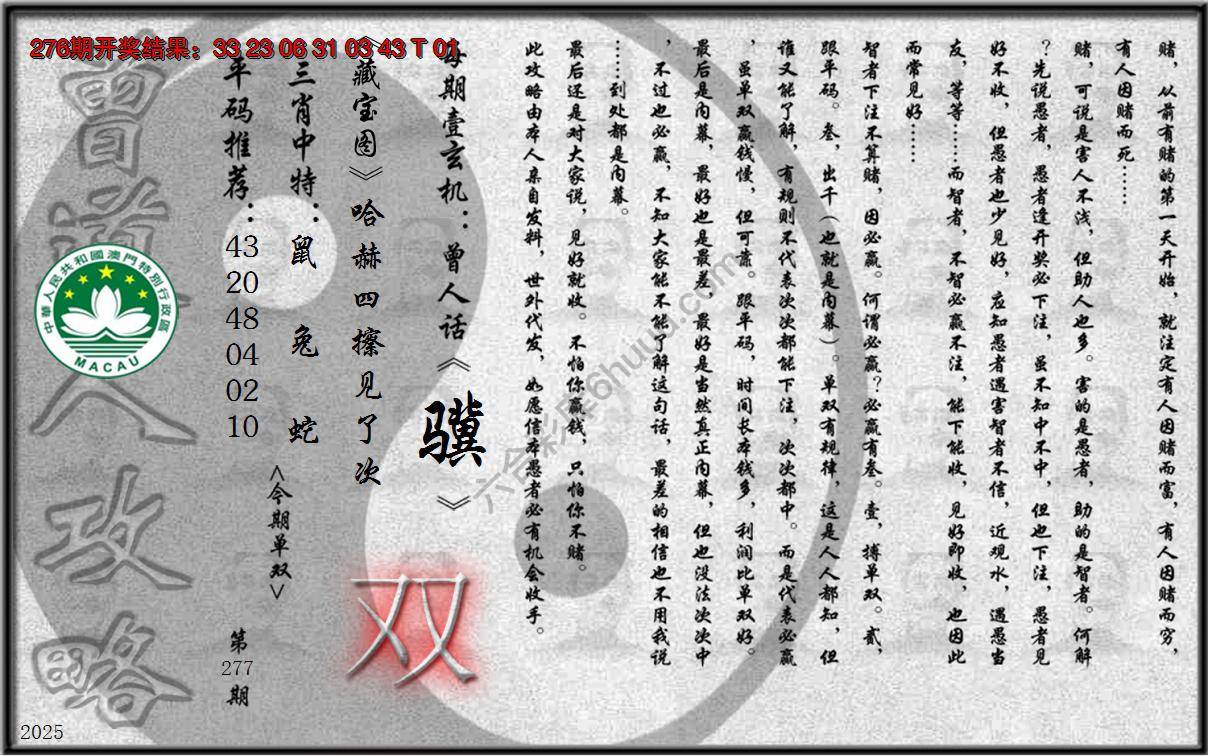 276期开奖结果：33 23 06 31 03 43 T 01
赌，从前有赌的第一天开始，就注定有人因赌而富，有人因赌而穷，
有人因赌而死……
赌，可说是害人不浅，但助人也多。害的是愚者，助的是智者。何解
？先说愚者，愚者逢开奖必下注，虽不知中不中，但也下注，愚者见
好不收，但愚者也少见好，应知愚者遇害智者不信，近观水，遇愚当
友，等等……而智者，不智必赢不注，能下能收，见好即收，也因此
而常见好……
智者下注不算赌，因必赢。何谓必赢？必赢有叁。壹，搏单双。贰，
跟平码。叁，出千（也就是内幕）。单双有规律，这是人人都知，但
谁又能了解，有规则不代表次次都能下注，次次都中。而是代表必赢
，虽单双赢钱慢，但可靠。跟平码，时间长本钱多，利润比单双好。
最后是内幕，最好也是最差，最好是当然真正内幕，但也没法次次中
，不过也必赢，不知大家能不能了解这句话，最差的相信也不用我说
……到处都是内幕。
最后还是对大家说，见好就收。不怕你赢钱，只怕你不赌。
此攻略由本人亲自发料，世外代发，如愿信本愚者必有机会收手。
每期壹玄机：曾人话《骥》
《藏宝图》哈赫四擦见了次
双
三肖中特：鼠 兔 蛇
<今期单双>
平码推荐：
43
20
48
04
02
10
第
277
期
曾道人攻略
中華人民共和國澳門特別行政區
MACAU
2025
六合彩库6huuu.com